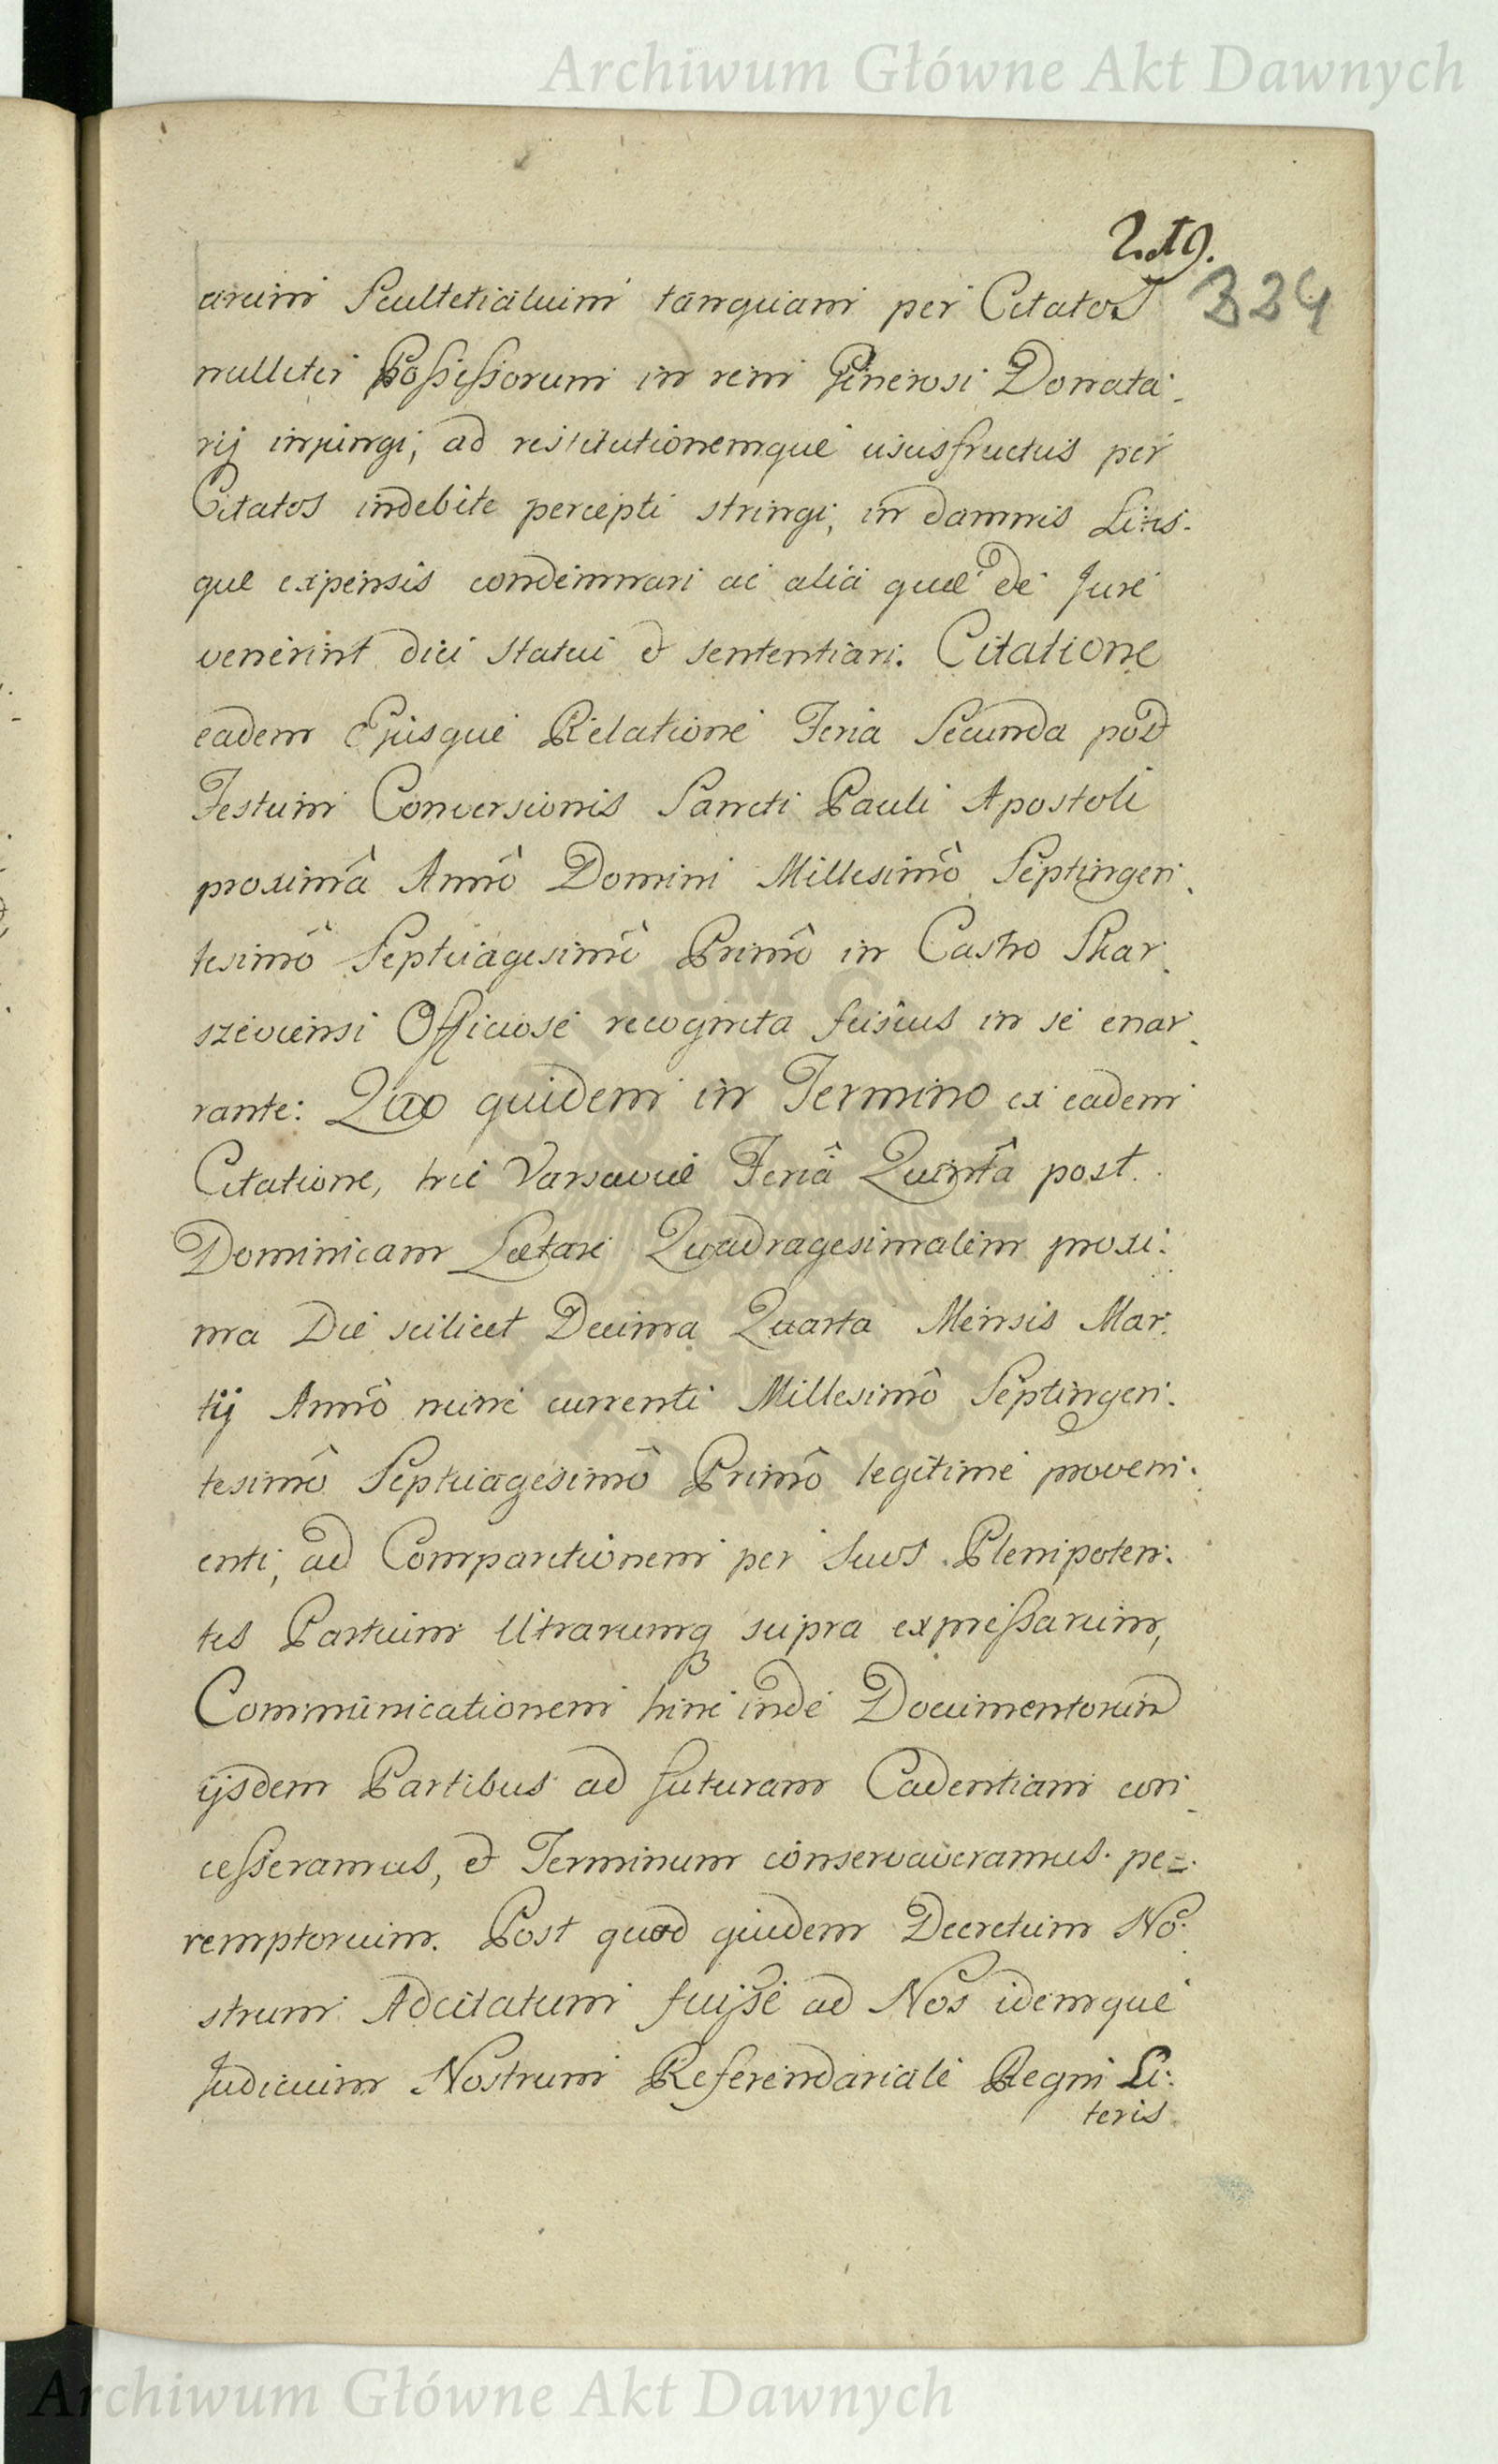 Archiwum Główne Akt Dawnych
219.
334
arum Scultetialium tanquam per Citatos
nulliter Possessorum in rem Generosi Donata-
rij injungi, ad restitutionemque ususfructus per
Citatos indebite percepti stringi, in damnis Litis-
que expensis condemnari ac alia quæ de Jure
venerint dici statui et sententiari. Citatione
eadem Ejusque Relatione Feria Secunda post
Festum Conversionis Sancti Pauli Apostoli
proximâ Annô Domini Millesimô Septingen-
tesimô Septuagesimô Primô in Castro Skar-
szeviensi Officiose recognita fusius in se enar-
rante: Quo quidem in Termino ex eadem
Citatione, hic Varsaviæ Feriâ Quintâ post
Dominicam Lætare Quadragesimalem proxi-
ma Die scilicet Decima Quarta Mensis Mar-
tij Annô nunc currenti Millesimô Septingen-
tesimô Septuagesimô Primô legitime proveni-
enti, ad Comparitionem per suos Plenipoten-
tes Partium Utrarumq supra expressarum,
Communicationem hinc inde Documentorum
ijsdem Partibus ad futuram Cadentiam con-
cesseramus, et Terminum conservaveramus pe-
remptorium. Post quod quidem Decretum No-
strum Adcitatum fuisse ad Nos idemque
Judicium Nostrum Referendariale Regni Li-
teris
Archiwum Główne Akt Dawnych